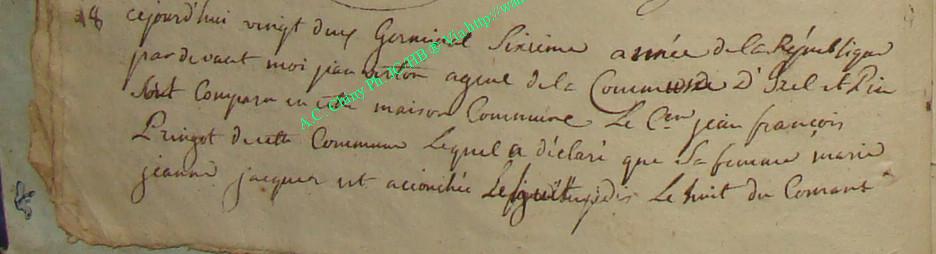 18 cejourd'hui vingt deux Germinal Sixieme année de la République
pardevant moi jean agent de la Commune D'Izel et Pin
Sont Comparu en cette maison Commune Le Cen jean françois
Pringot de cette Commune Lequel a déclaré que Sa femme marie
jeanne jacques est acouchée Le huit du Courant
A.C. Chiny Ph JC HB ® Via http://www